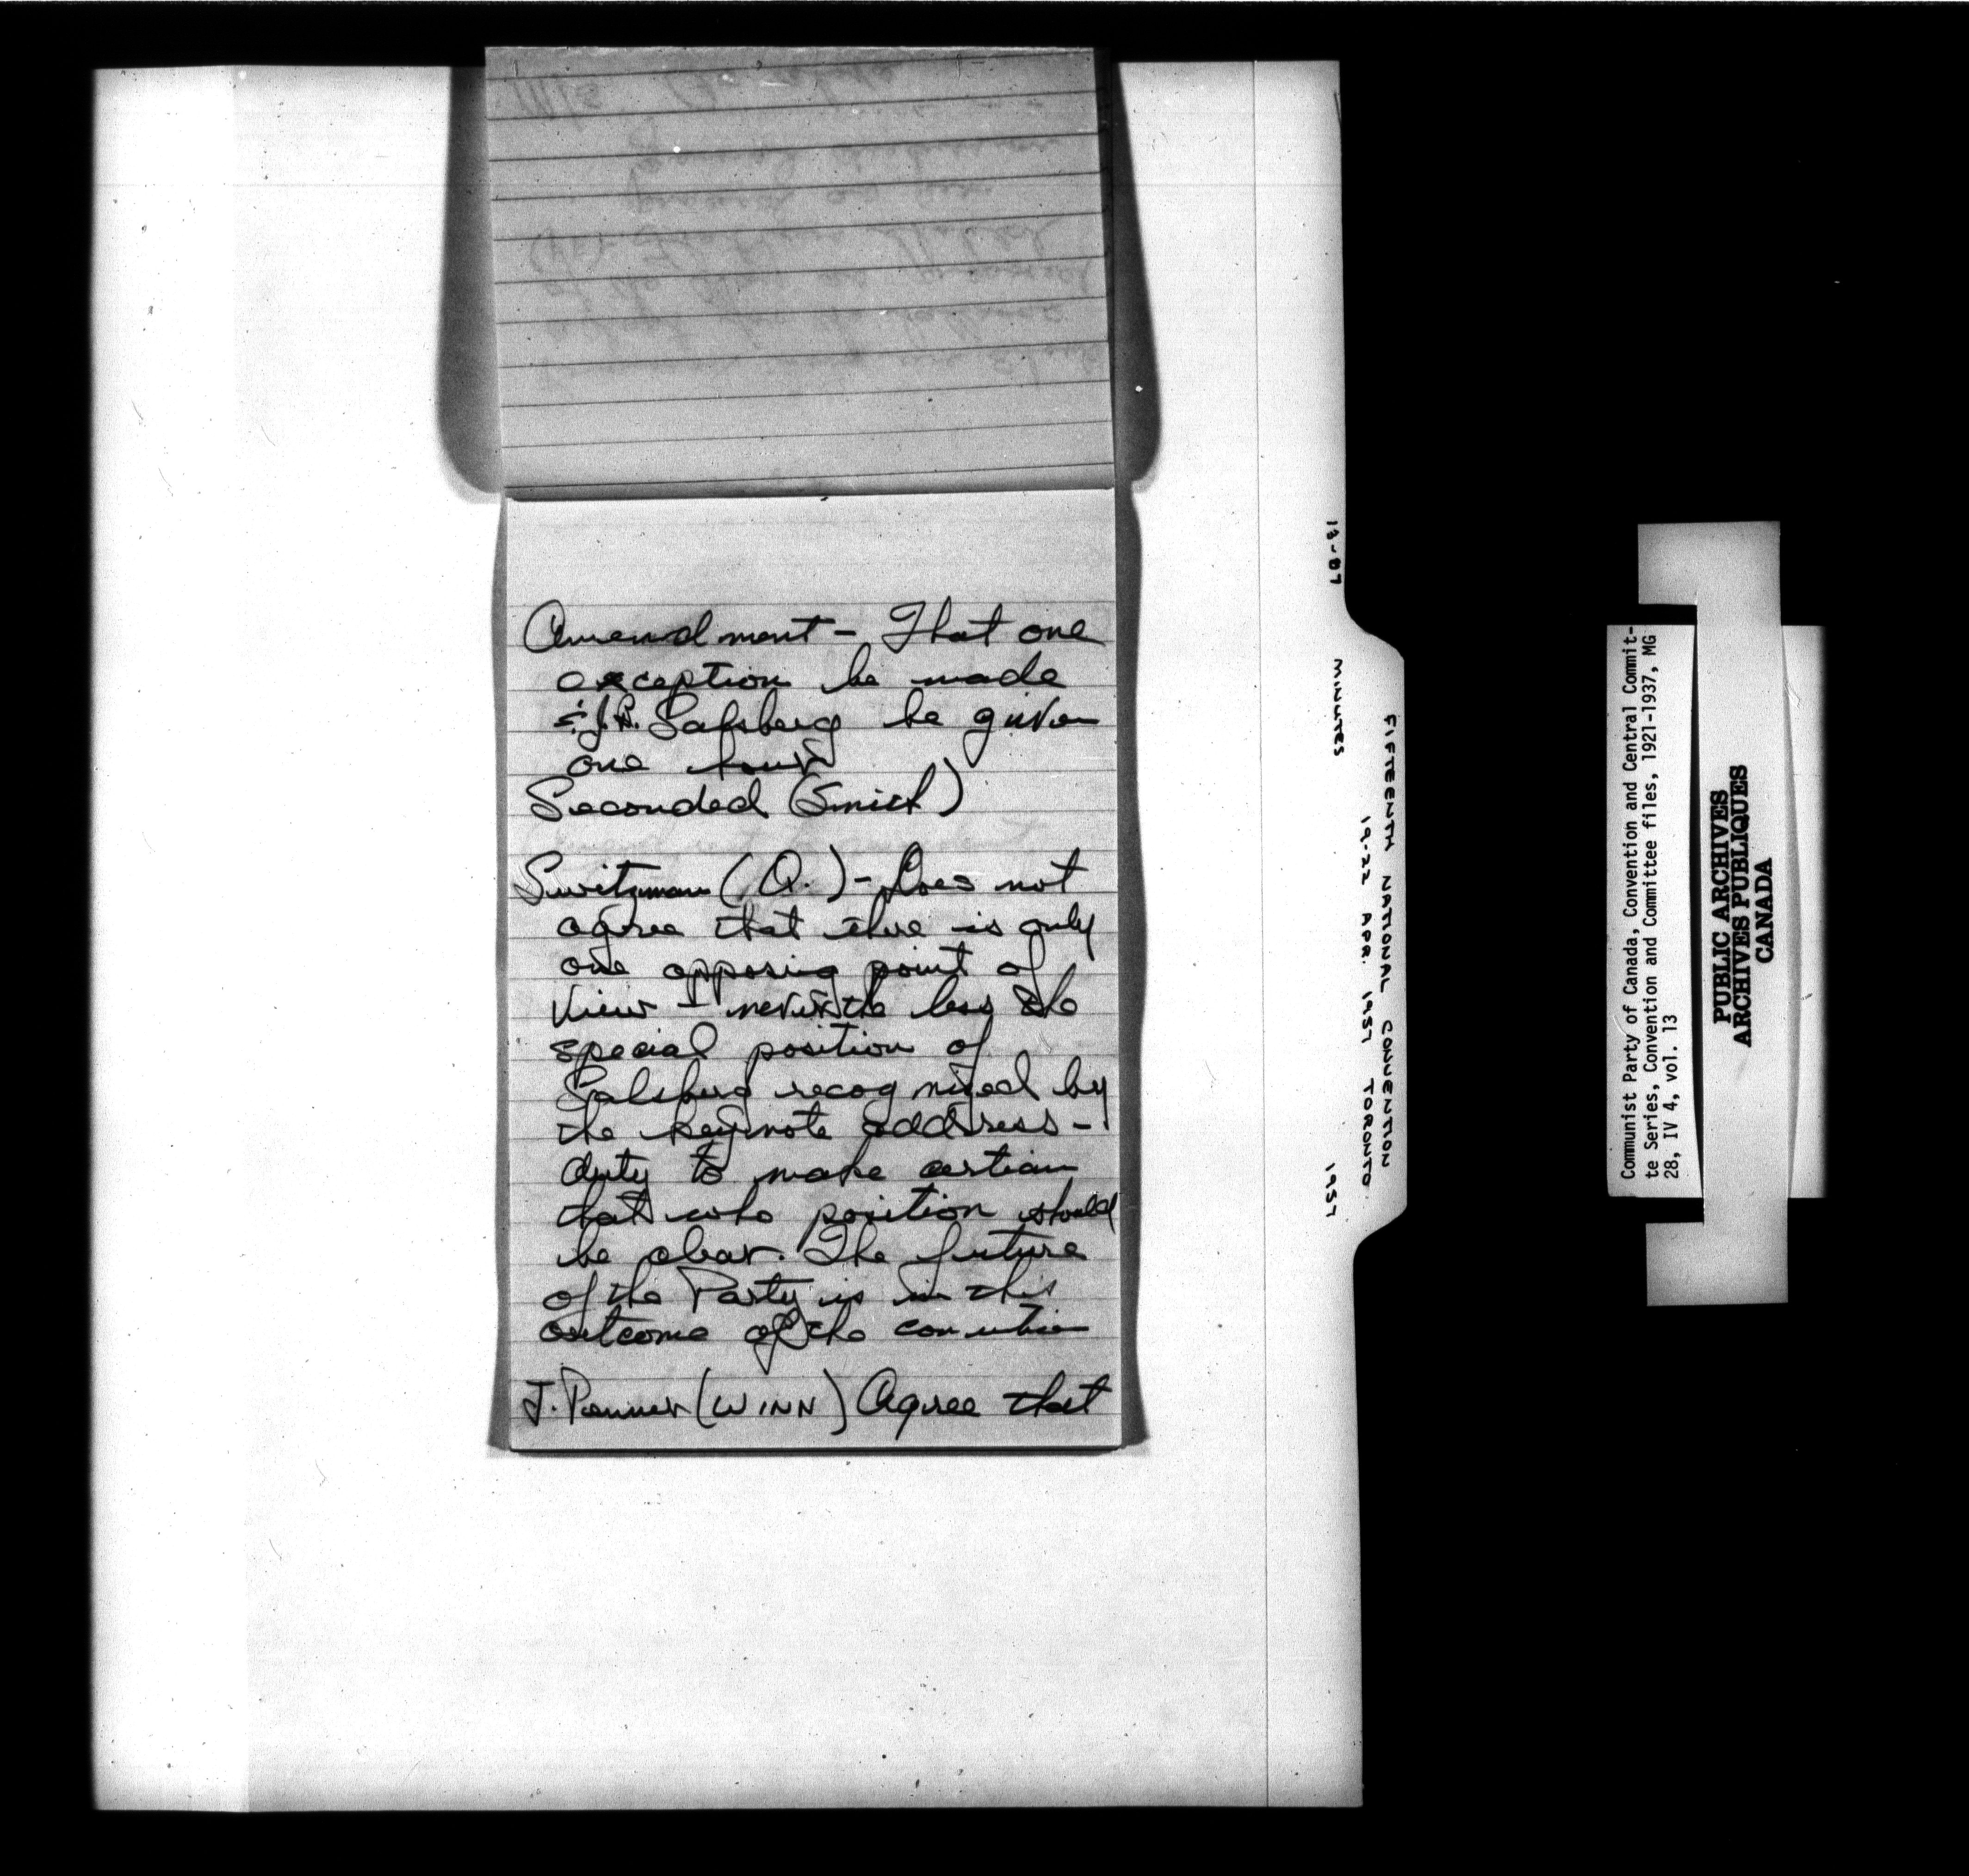 Amendment - That one
exception be made
& J.B. Salsberg be given
one hour
Seconded (Smith)
Switzman (Q.) - Does not
agree that there is only
one opposing point of
view - nevertheless the
special position of
Salsberg recognized by
the keynote address -
duty to make certian
that who position should
be clear. The future
of the Party is in this
outcome of the convention
J. Penner (WINN) Agree that
13-07
MINUTES
1957
FIFTEENTH NATIONAL CONVENTION
19-22 APR. 1957 TORONTO
Communist Party of Canada, Convention and Central Commit-
te Series, Convention and Committee files, 1921-1937, MG
28, IV 4, vol. 13
PUBLIC ARCHIVES
ARCHIVES PUBLIQUES
CANADA